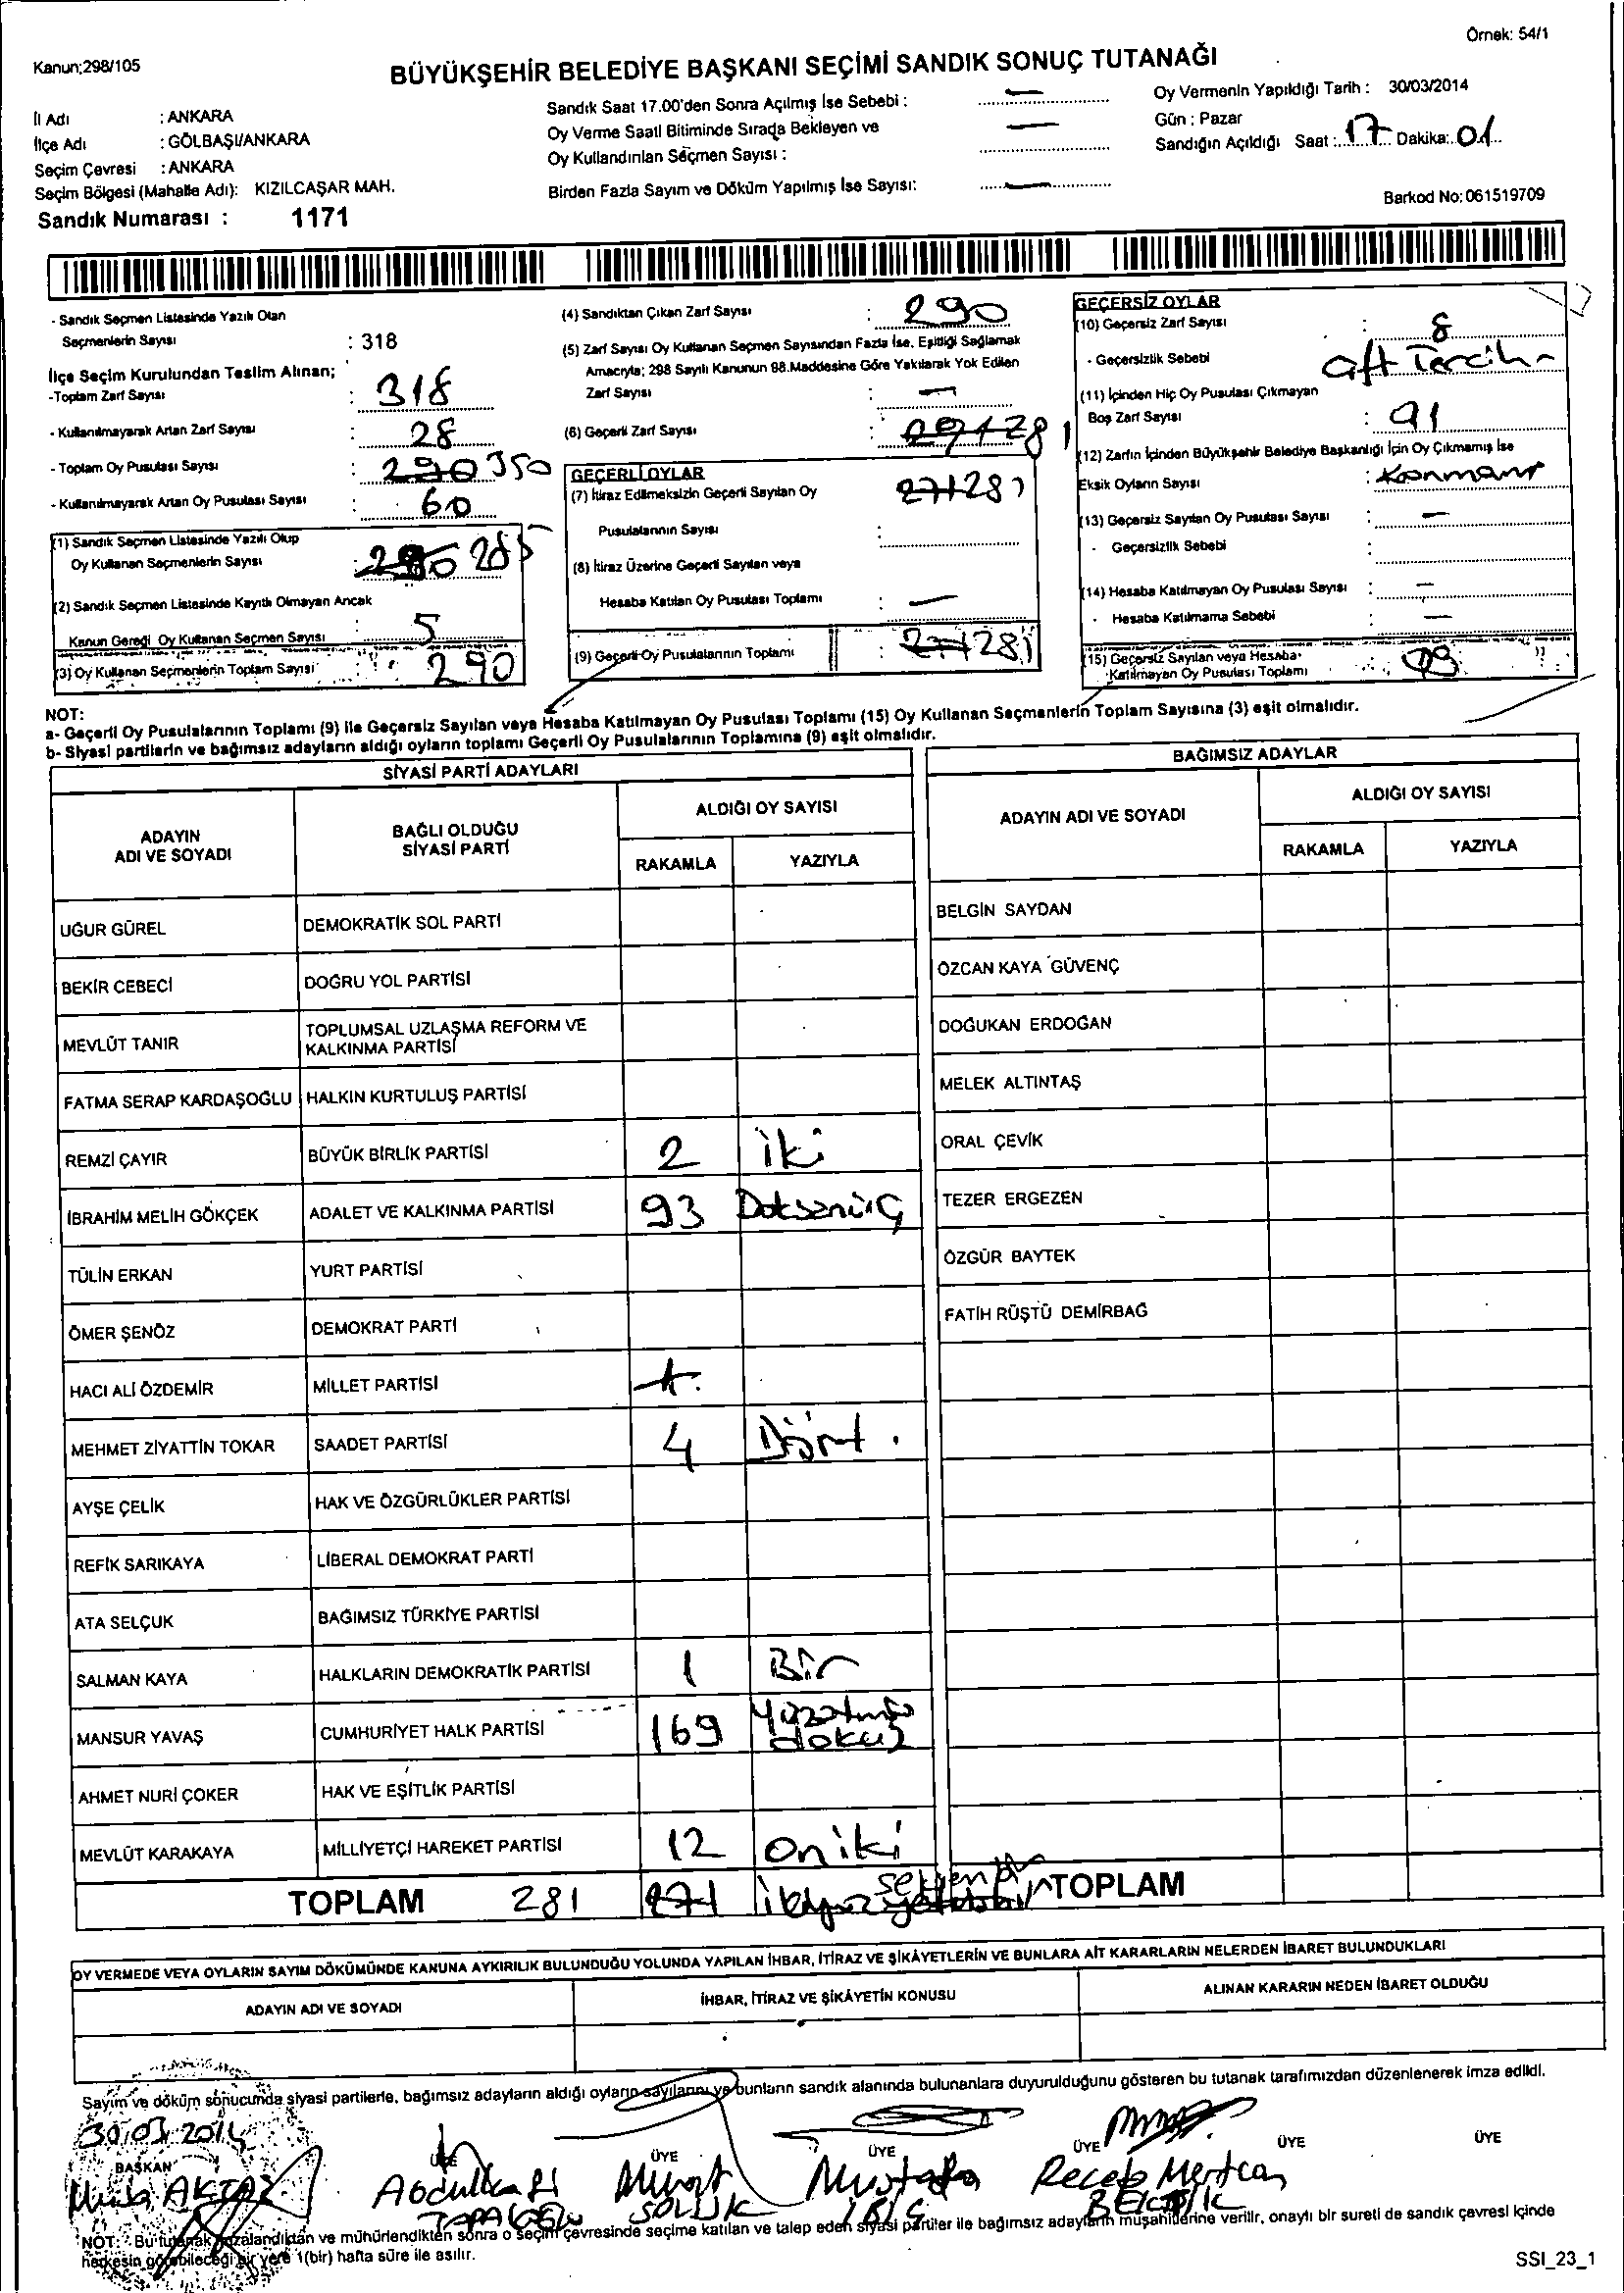 Örnek: 54/1
Kanun;298/105
BÜYÜKŞEHİR BELEDİYE BAŞKANI SEÇİMİ SANDIK SONUÇ TUTANAĞI
İl Adı : ANKARA
İlçe Adı : GÖLBAŞI/ANKARA
Seçim Çevresi : ANKARA
Seçim Bölgesi (Mahalle Adı): KIZILCAŞAR MAH.
Sandık Numarası : 1171
Sandık Saat 17.00'den Sonra Açılmış İse Sebebi : —
Oy Verme Saati Bitiminde Sırada Bekleyen ve
Oy Kullandırılan Seçmen Sayısı : —
Birden Fazla Sayım ve Döküm Yapılmış İse Sayısı: —
Oy Vermenin Yapıldığı Tarih : 30/03/2014
Gün : Pazar
Sandığın Açıldığı Saat : 17 Dakika: 01
Barkod No: 061519709
- Sandık Seçmen Listesinde Yazılı Olan
Seçmenlerin Sayısı : 318
İlçe Seçim Kurulundan Teslim Alınan;
-Toplam Zarf Sayısı : 318
- Kullanılmayarak Artan Zarf Sayısı : 28
- Toplam Oy Pusulası Sayısı : 290 350
- Kullanılmayarak Artan Oy Pusulası Sayısı : 60
(1) Sandık Seçmen Listesinde Yazılı Olup
Oy Kullanan Seçmenlerin Sayısı : 285
(2) Sandık Seçmen Listesinde Kayıtlı Olmayan Ancak
Kanun Gereği Oy Kullanan Seçmen Sayısı : 5
(3) Oy Kullanan Seçmenlerin Toplam Sayısı : 290
(4) Sandıktan Çıkan Zarf Sayısı : 290
(5) Zarf Sayısı Oy Kullanan Seçmen Sayısından Fazla İse, Eşitliği Sağlamak
Amacıyla; 298 Sayılı Kanunun 98.Maddesine Göre Yakılarak Yok Edilen
Zarf Sayısı : —
(6) Geçerli Zarf Sayısı : 281
GEÇERLİ OYLAR
(7) İtiraz Edilmeksizin Geçerli Sayılan Oy 271 281
Pusulalarının Sayısı :
(8) İtiraz Üzerine Geçerli Sayılan veya
Hesaba Katılan Oy Pusulası Toplamı : —
(9) Geçerli Oy Pusulalarının Toplamı : 271 281
GEÇERSİZ OYLAR
(10) Geçersiz Zarf Sayısı : 8
- Geçersizlik Sebebi
(11) İçinden Hiç Oy Pusulası Çıkmayan
Boş Zarf Sayısı :
(12) Zarfın İçinden Büyükşehir Belediye Başkanlığı İçin Oy Çıkmamış İse
Eksik Oyların Sayısı :
(13) Geçersiz Sayılan Oy Pusulası Sayısı : —
- Geçersizlik Sebebi :
(14) Hesaba Katılmayan Oy Pusulası Sayısı : —
- Hesaba Katılmama Sebebi : —
(15) Geçersiz Sayılan veya Hesaba
Katılmayan Oy Pusulası Toplamı :
NOT:
a- Geçerli Oy Pusulalarının Toplamı (9) ile Geçersiz Sayılan veya Hesaba Katılmayan Oy Pusulası Toplamı (15) Oy Kullanan Seçmenlerin Toplam Sayısına (3) eşit olmalıdır.
b- Siyasi partilerin ve bağımsız adayların aldığı oyların toplamı Geçerli Oy Pusulalarının Toplamına (9) eşit olmalıdır.
SİYASİ PARTİ ADAYLARI
ADAYIN ADI VE SOYADI
BAĞLI OLDUĞU SİYASİ PARTİ
ALDIĞI OY SAYISI
RAKAMLA YAZIYLA
UĞUR GÜREL DEMOKRATİK SOL PARTİ
BEKİR CEBECİ DOĞRU YOL PARTİSİ
MEVLÜT TANIR TOPLUMSAL UZLAŞMA REFORM VE KALKINMA PARTİSİ
FATMA SERAP KARDAŞOĞLU HALKIN KURTULUŞ PARTİSİ
REMZİ ÇAYIR BÜYÜK BİRLİK PARTİSİ 2 iki
İBRAHİM MELİH GÖKÇEK ADALET VE KALKINMA PARTİSİ 93 Doksanüç
TÜLİN ERKAN YURT PARTİSİ
ÖMER ŞENÖZ DEMOKRAT PARTİ
HACI ALİ ÖZDEMİR MİLLET PARTİSİ
MEHMET ZİYATTİN TOKAR SAADET PARTİSİ 4 Dört.
AYŞE ÇELİK HAK VE ÖZGÜRLÜKLER PARTİSİ
REFİK SARIKAYA LİBERAL DEMOKRAT PARTİ
ATA SELÇUK BAĞIMSIZ TÜRKİYE PARTİSİ
SALMAN KAYA HALKLARIN DEMOKRATİK PARTİSİ 1 Bir
MANSUR YAVAŞ CUMHURİYET HALK PARTİSİ 169 Yüzatmış dokuz
AHMET NURİ ÇOKER HAK VE EŞİTLİK PARTİSİ
MEVLÜT KARAKAYA MİLLİYETÇİ HAREKET PARTİSİ 12 oniki
TOPLAM 281 271 ikiyüz seksenbir
BAĞIMSIZ ADAYLAR
ADAYIN ADI VE SOYADI
ALDIĞI OY SAYISI
RAKAMLA YAZIYLA
BELGİN SAYDAN
ÖZCAN KAYA GÜVENÇ
DOĞUKAN ERDOĞAN
MELEK ALTINTAŞ
ORAL ÇEVİK
TEZER ERGEZEN
ÖZGÜR BAYTEK
FATİH RÜŞTÜ DEMİRBAĞ
TOPLAM
OY VERMEDE VEYA OYLARIN SAYIM DÖKÜMÜNDE KANUNA AYKIRILIK BULUNDUĞU YOLUNDA YAPILAN İHBAR, İTİRAZ VE ŞİKÂYETLERİN VE BUNLARA AİT KARARLARIN NELERDEN İBARET BULUNDUKLARI
ADAYIN ADI VE SOYADI
İHBAR, İTİRAZ VE ŞİKÂYETİN KONUSU
ALINAN KARARIN NEDEN İBARET OLDUĞU
Sayım ve döküm sonucunda siyasi partilerle, bağımsız adayların aldığı oyların sayılarını ve bunların sandık alanında bulunanlara duyurulduğunu gösteren bu tutanak tarafımızdan düzenlenerek imza edildi.
30.03.2014
BAŞKAN ÜYE ÜYE ÜYE ÜYE ÜYE ÜYE
AKTAŞ Murat SOLUK Mustafa Recep Mertcan
NOT: Bu tutanak imzalandıktan ve mühürlendikten sonra o seçim çevresinde seçime katılan ve talep eden siyasi partiler ile bağımsız adayların müşahitlerine verilir, onaylı bir sureti de sandık çevresi içinde
herkesin görebileceği bir yere 1(bir) hafta süre ile asılır.
SSI_23_1